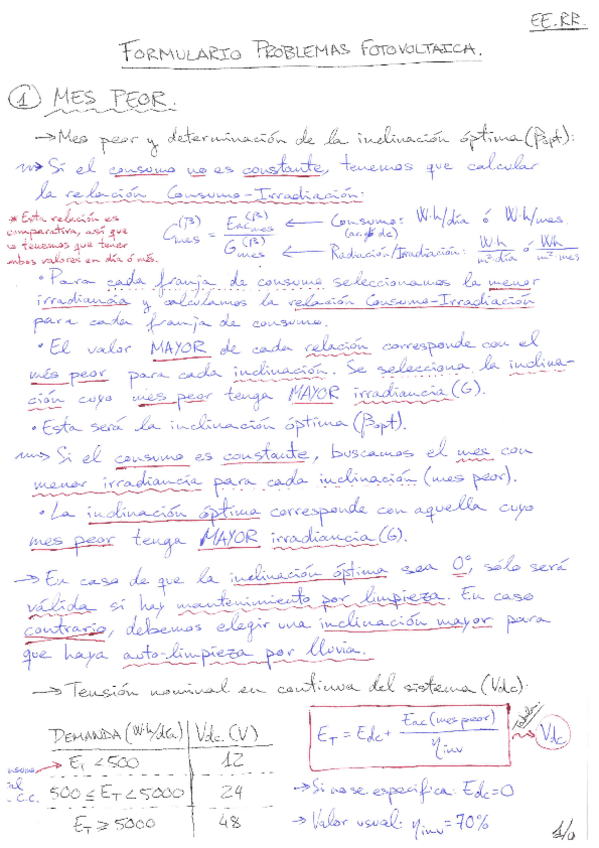 EE.RR.
FORMULARIO PROBLEMAS FOTOVOLTAICA.
① MES PEOR.
→ Mes peor y determinación de la inclinación óptima (βopt):
⇝ Si el consumo no es constante, tenemos que calcular
la relación Consumo-Irradiación:
* Esta relación es
comparativa, así que
tenemos que tener
ambos valores en día ó més.
C mes (β) = Eac mes (β) / G mes (β)
← Consumo: W·h/día ó W·h/mes.
← Radiación/Irradiación: Wh/m²·día ó Wh/m²·mes
• Para cada franja de consumo seleccionamos la menor
irradiancia y calculamos la relación Consumo-Irradiación
para cada franja de consumo.
• El valor MAYOR de cada relación corresponde con el
més peor para cada inclinación. Se selecciona la inclina-
ción cuyo mes peor tenga MAYOR irradiancia (G).
• Esta será la inclinación óptima (βopt).
⇝ Si el consumo es constante, buscamos el mes con
menor irradiancia para cada inclinación (mes peor).
• La inclinación óptima corresponde con aquella cuyo
mes peor tenga MAYOR irradiancia (G).
→ En caso de que la inclinación óptima sea 0°, sólo será
válida si hay mantenimiento por limpieza. En caso
contrario, debemos elegir una inclinación mayor para
que haya auto-limpieza por lluvia.
→ Tensión nominal en continua del sistema (Vdc):
DEMANDA (W·h/día) Vdc. (V)
Et < 500 12
500 ≤ ET < 5000 24
ET ≥ 5000 48
C.C.
ET = Edc + Eac (mes peor) / ηinv
Vdc
→ Si no se especifica: Edc = 0
→ Valor usual: ηinv = 70%